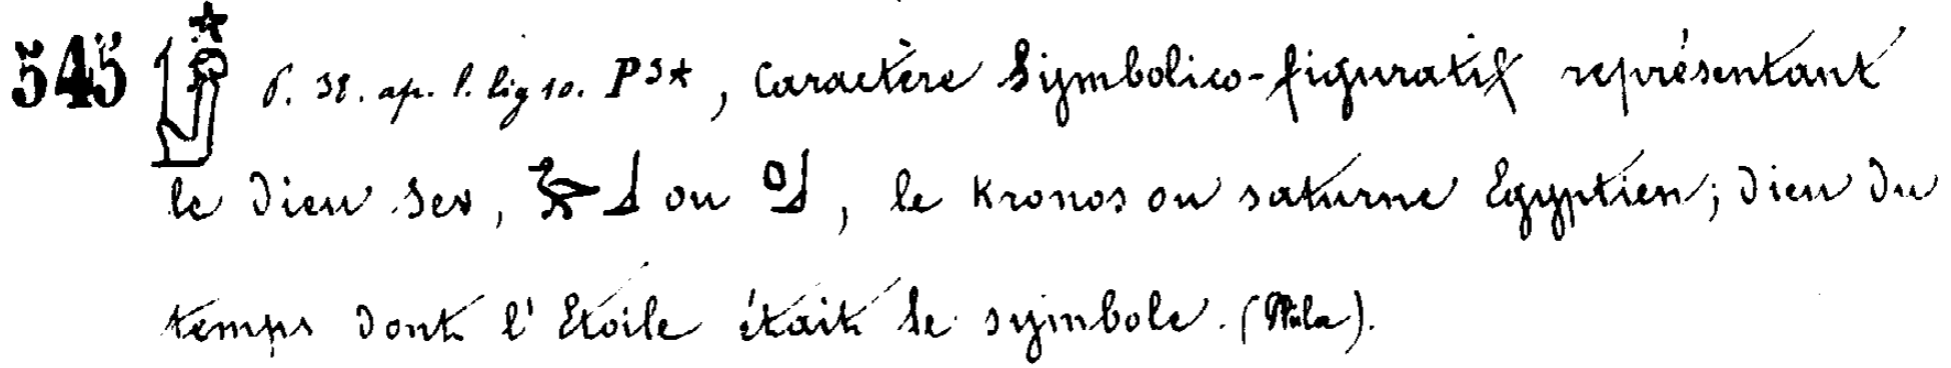 545 p. 38. ap. l. lig 10. P3*, Caractère Symbolico-figuratif représentant
le Dieu Sev, ou , le Kronos ou saturne Egyptien; Dieu Du
temps Dont l'Etoile était le symbole. (Philæ).